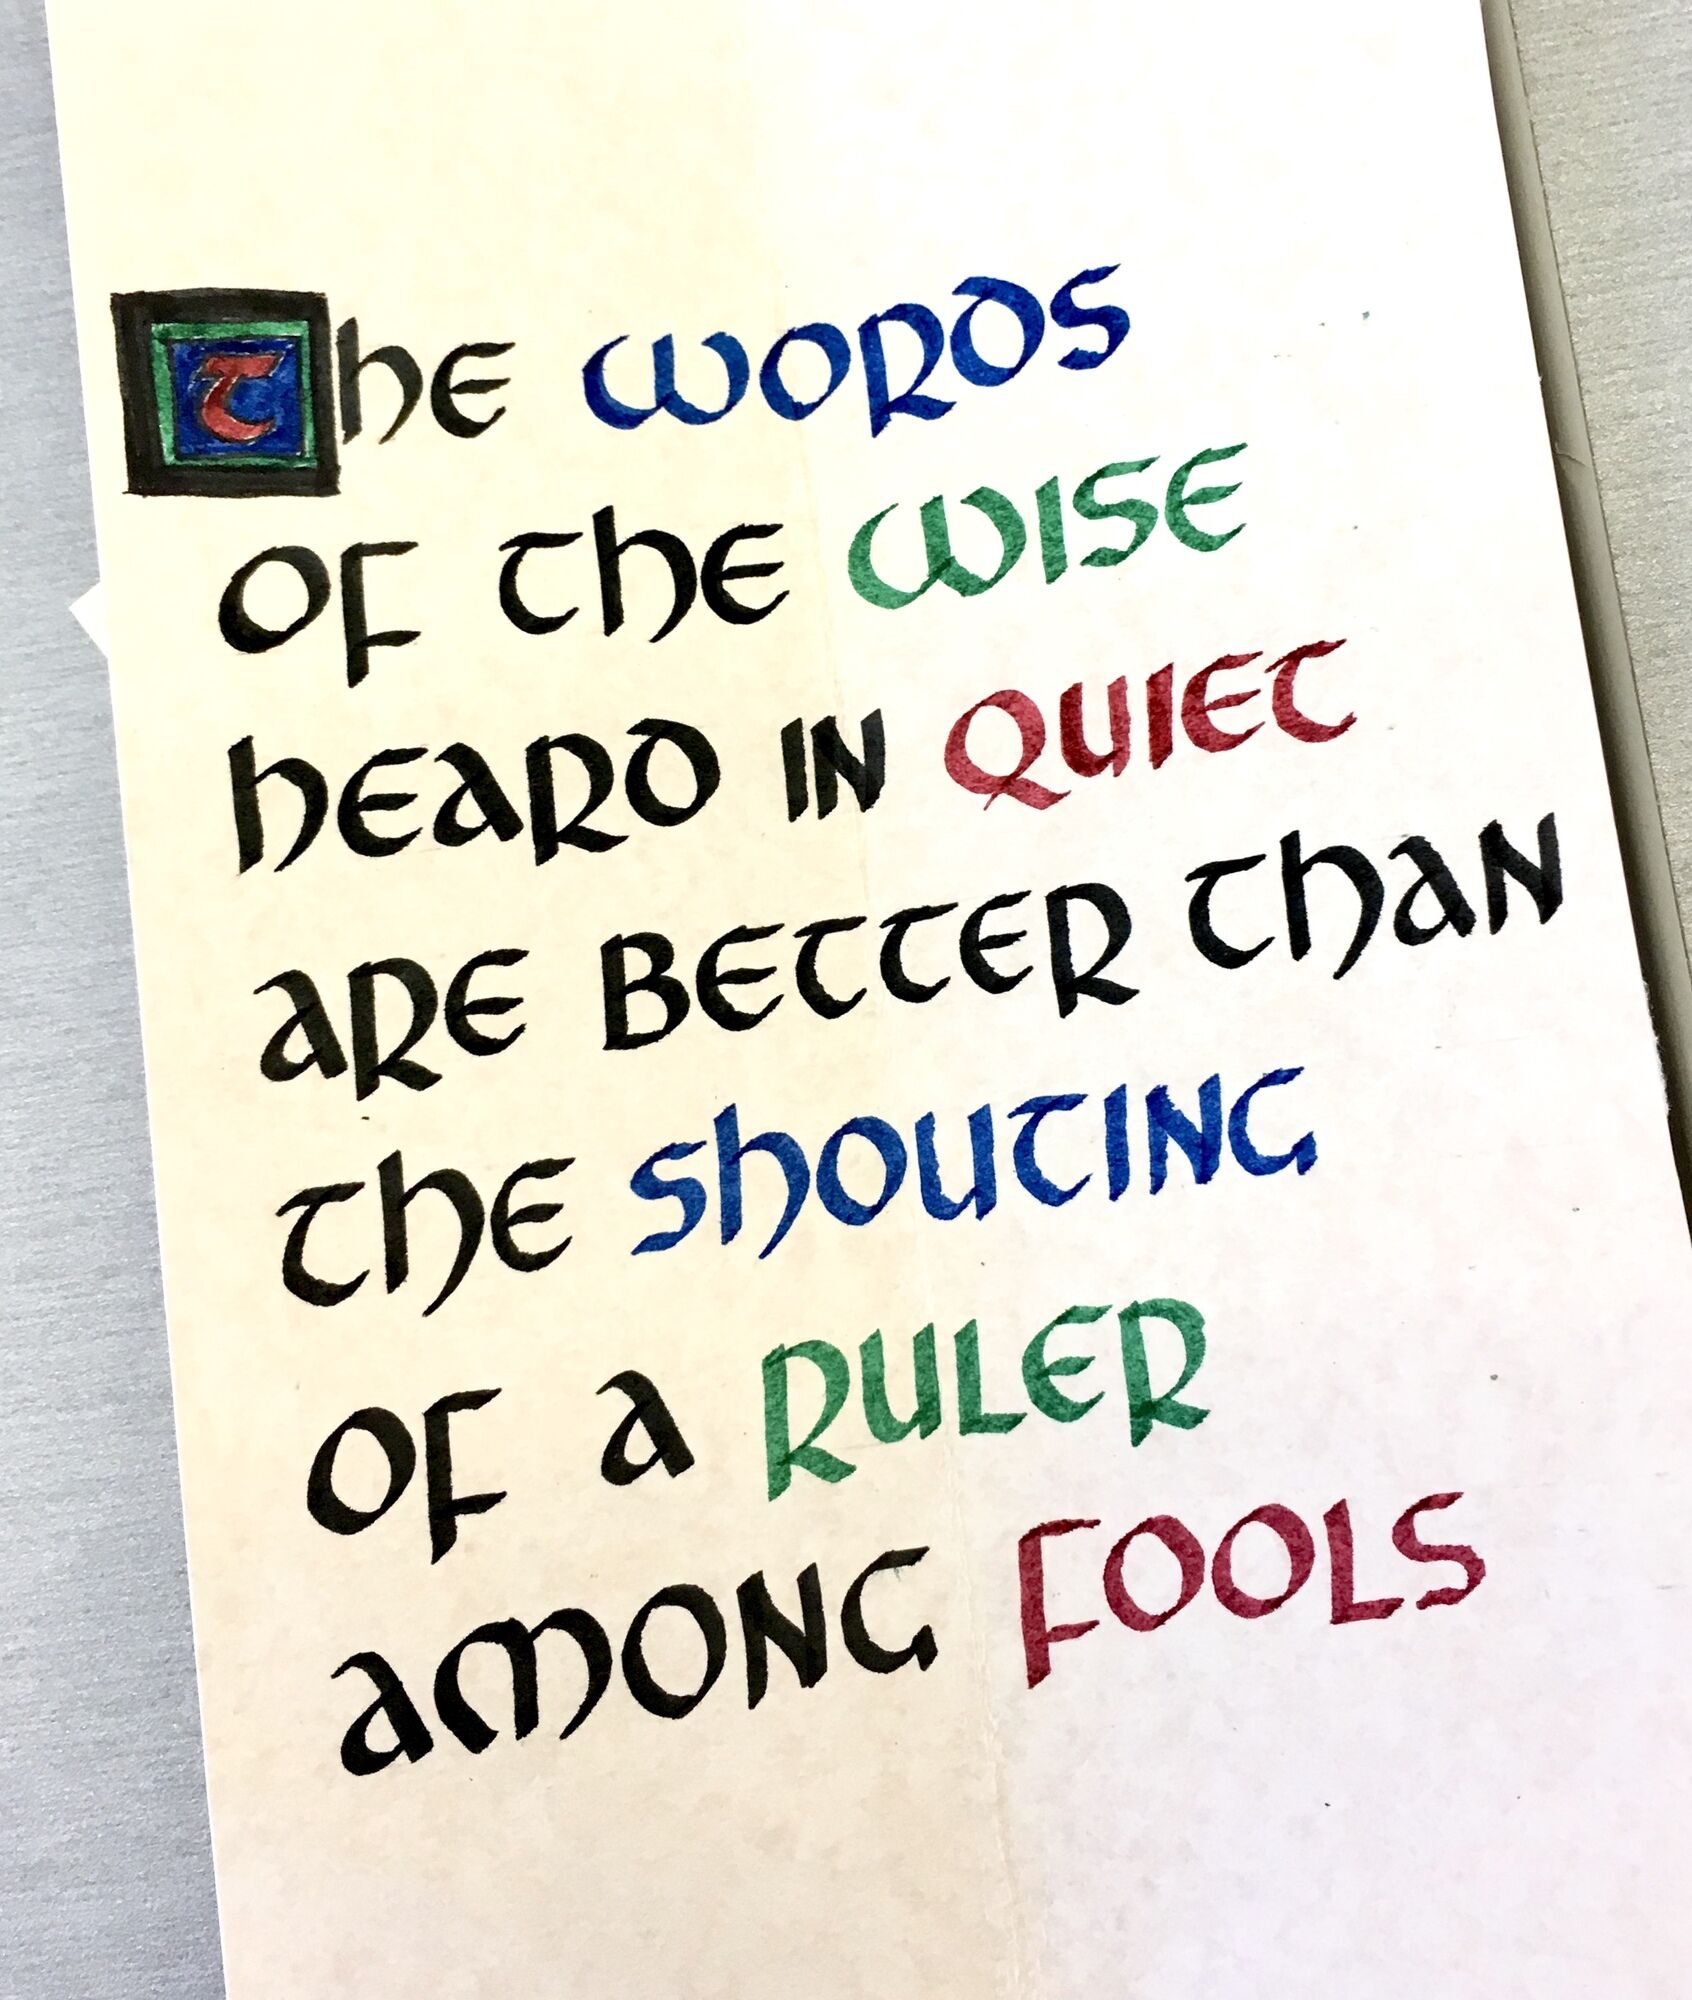 The words
of the wise
heard in quiet
are better than
the shouting
of a ruler
among fools